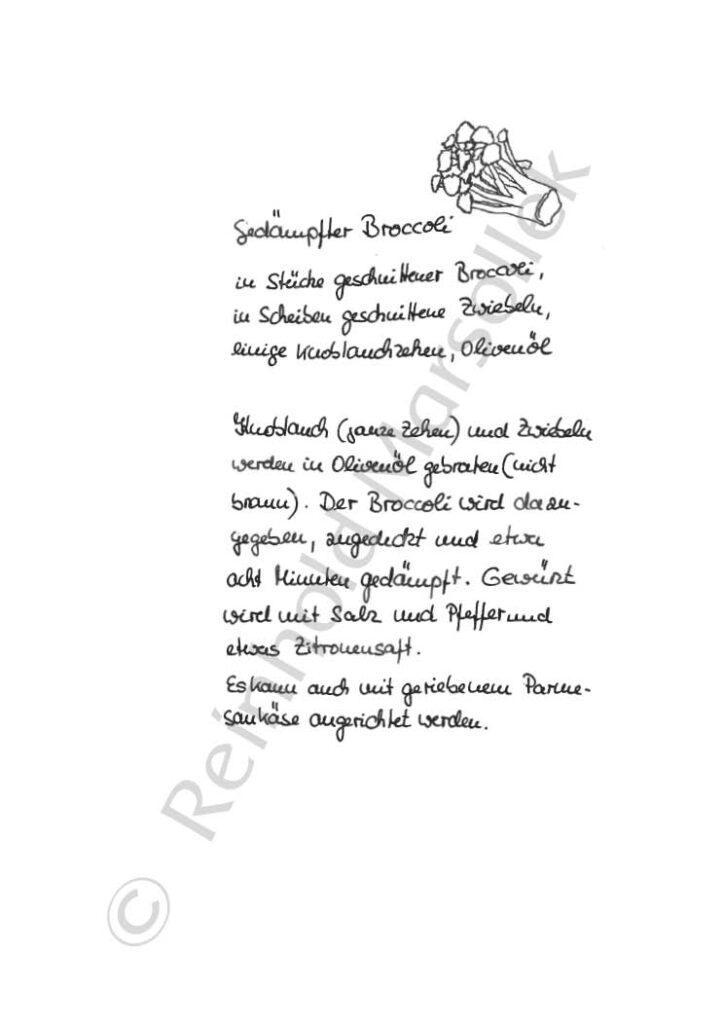 Gedämpfter Broccoli
in Stücke geschnittener Broccoli,
in Scheiben geschnittene Zwiebeln,
einige Knoblauchzehen, Olivenöl
Knoblauch (ganze Zehen) und Zwiebeln
werden in Olivenöl gebraten (nicht
braun). Der Broccoli wird dazu-
gegeben, zugedeckt und etwa
acht Minuten gedämpft. Gewürzt
wird mit Salz und Pfeffer und
etwas Zitronensaft.
Es kann auch mit geriebenem Parme-
sankäse angerichtet werden.
© Reinhold Marsollek